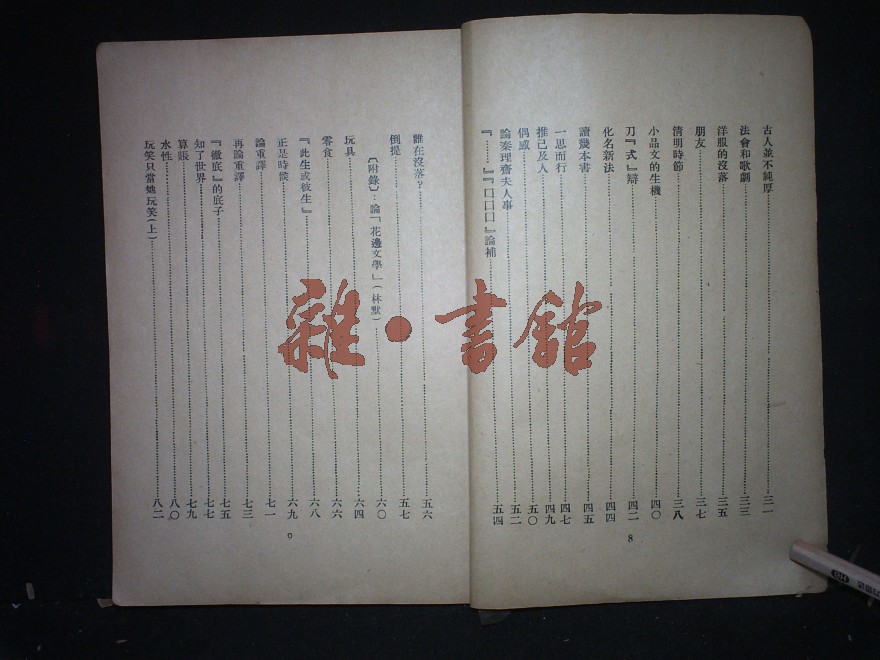 古人並不純厚……三一
法會和歌劇……三三
洋服的沒落……三五
朋友……三七
清明時節……三八
小品文的生機……四〇
刀『式』辯……四二
化名新法……四四
讀幾本書……四五
一思而行……四七
推己及人……四九
偶感……五〇
論秦理齋夫人事……五二
『……』『□□□□』論補……五四
8
誰在沒落？……五六
倒提……五七
〔附錄〕：論「花邊文學」（林默）……六〇
玩具……六四
零食……六六
『此生或彼生』……六八
正是時候……六九
論重譯……七一
再論重譯……七三
『徹底』的底子……七五
知了世界……七七
算賬……七九
水性……八〇
玩笑只當她玩笑（上）……八二
9
雜·書館